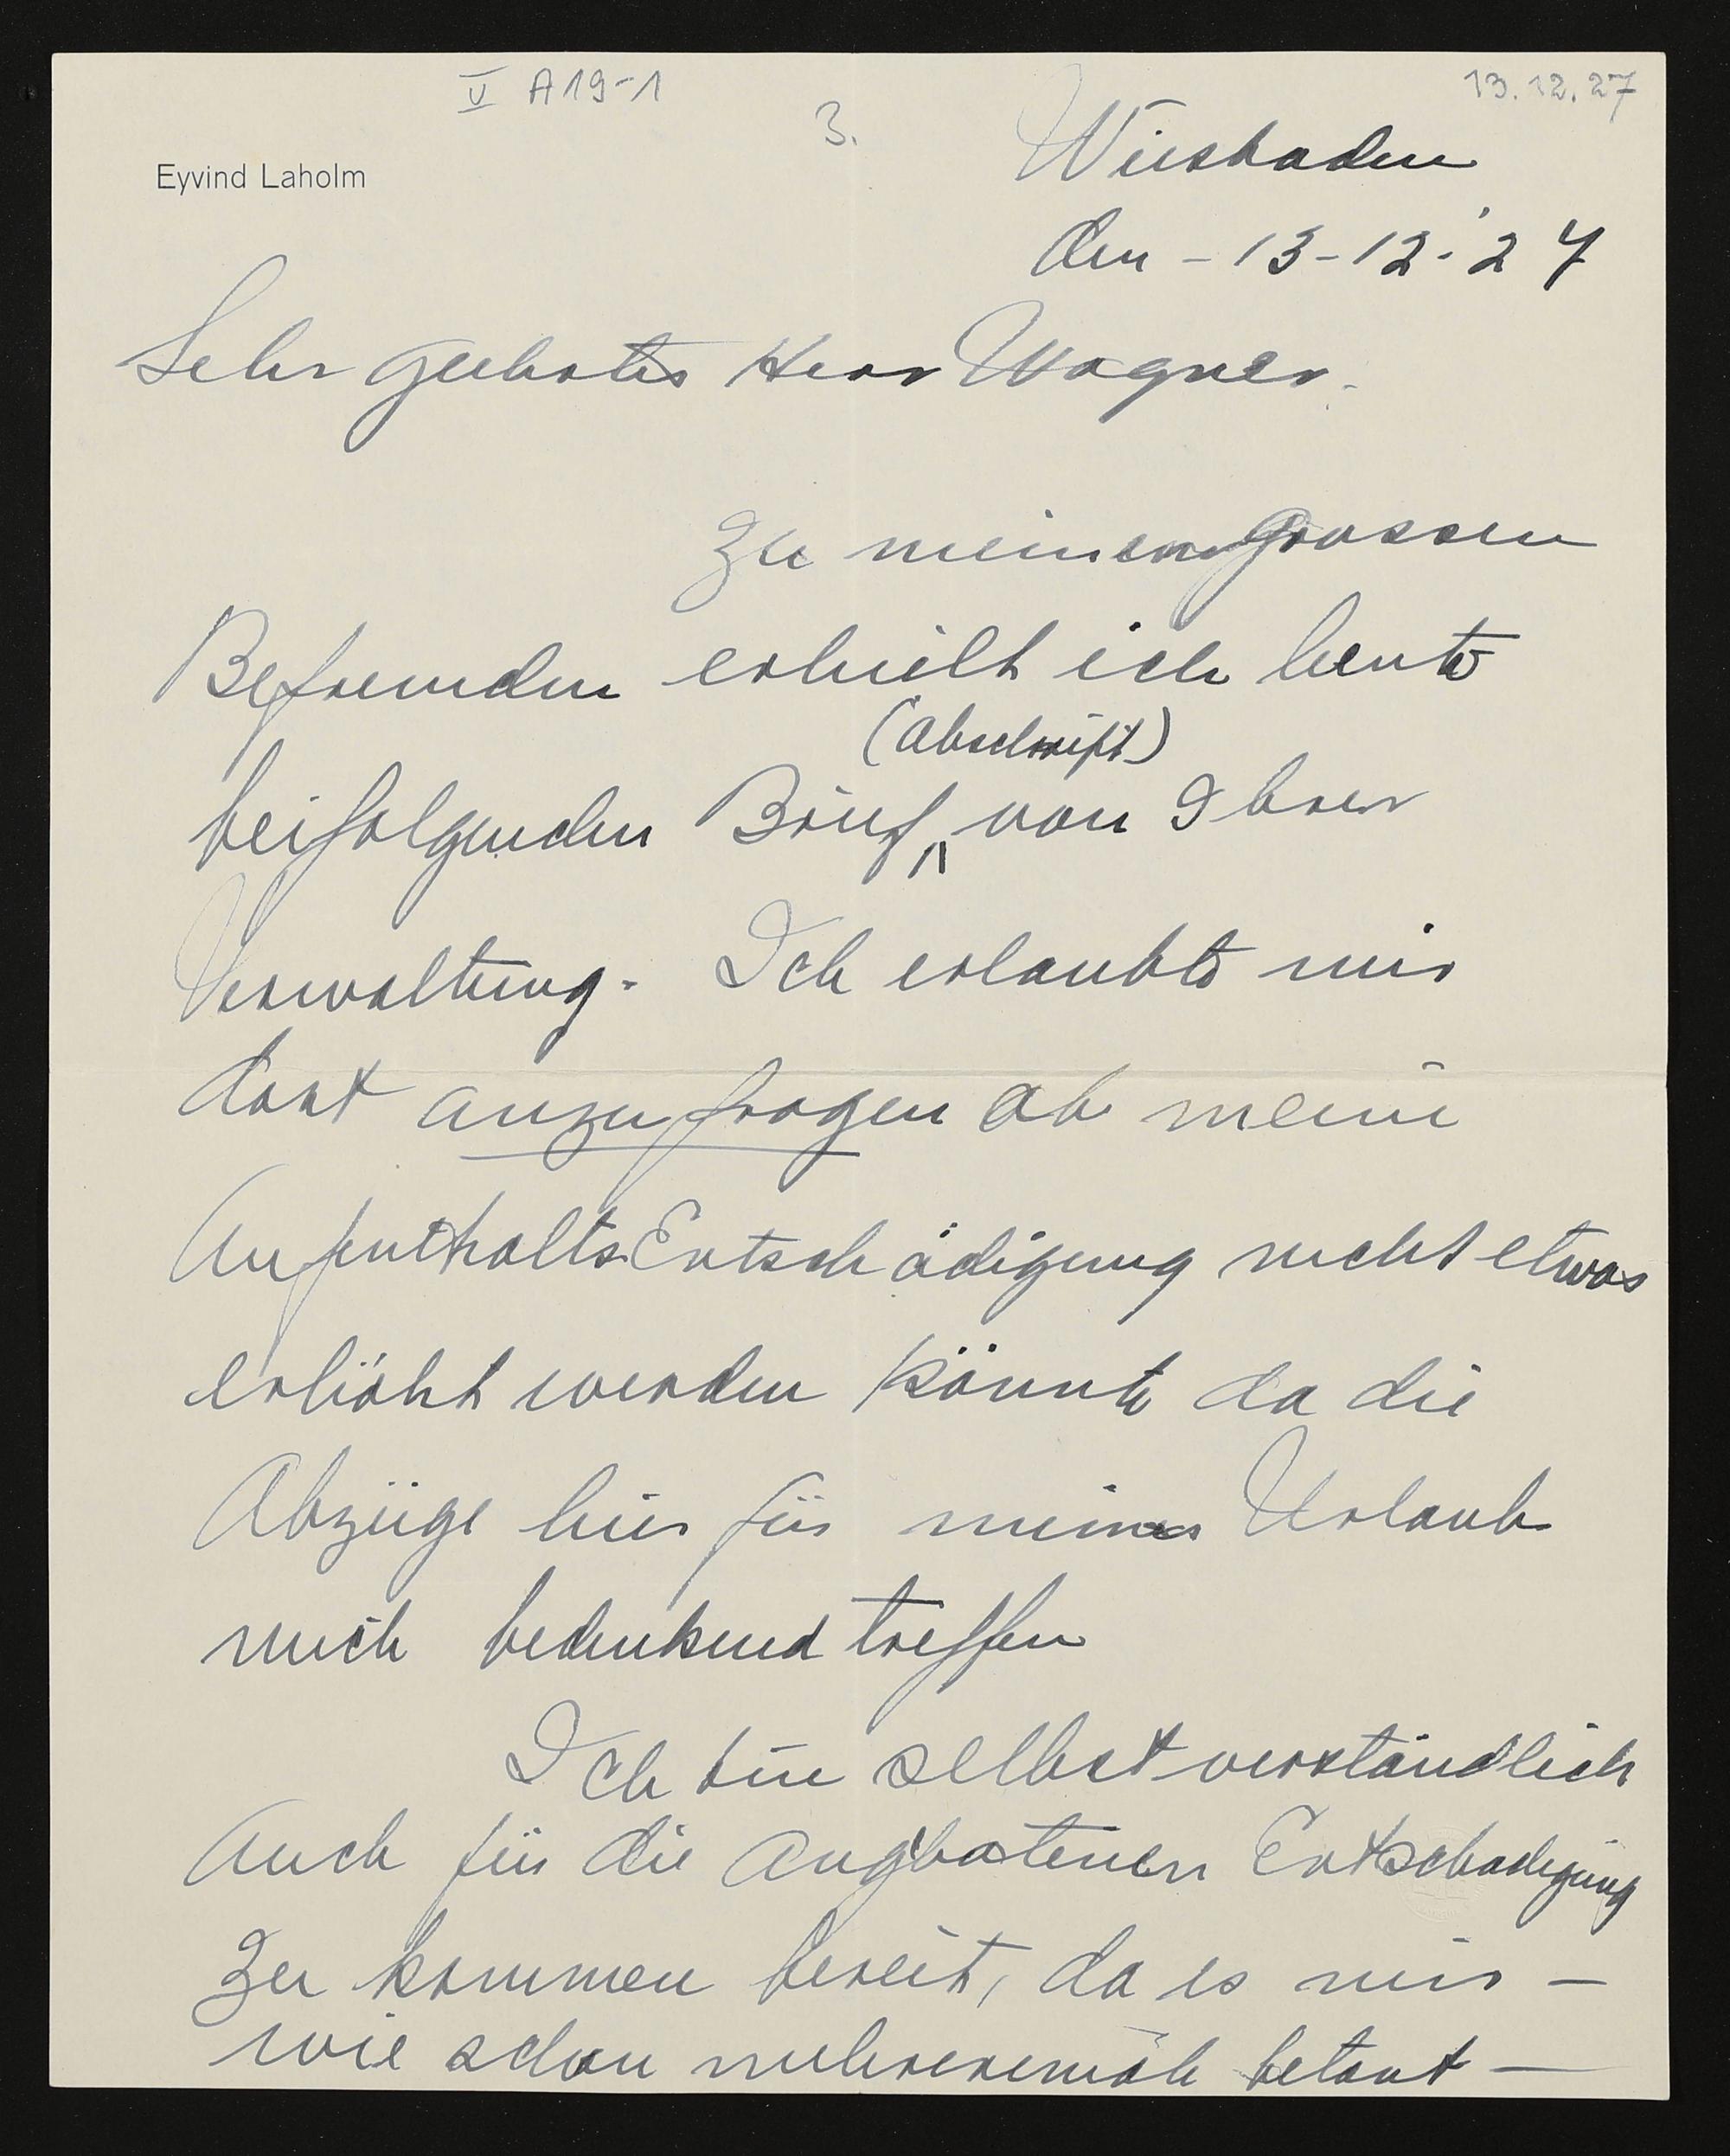 V A19-1
3.
13.12.27
Eyvind Laholm
Wiesbaden
den - 13-12-'27
Sehr geehrter Herr Wagner.
Zu meinem grossen
Befremden erhielt ich heute
(Abschrift)
beifolgenden Brief von Ihrer
Verwaltung. Ich erlaubte mir
dort anzufragen ob meine
Aufenthalts Entschädigung nicht etwas
erhöht werden könnte da die
Abzüge hier für meinen Urlaub
mich bedeutend treffen
Ich bin selbstverständlich
auch für die angebotenen Entschadigung
zu kommen bereit, da es mir —
wie schon mehreremale betont —